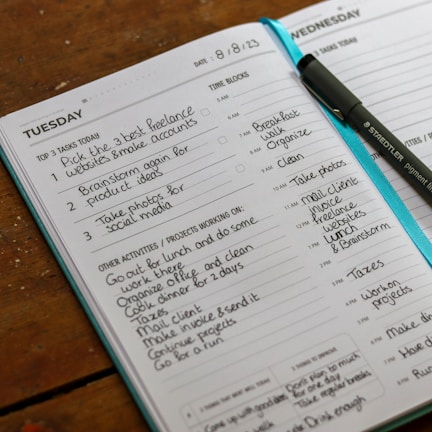 TUESDAY
DATE: 8/8/23
TOP 3 TASKS TODAY
1 Pick the 3 best freelance
websites & make accounts
2 Brainstorm again for
product ideas
3 Take photos for
social media
OTHER ACTIVITIES / PROJECTS WORKING ON:
Go out for lunch and do some
work there
Organize office and clean
Cook dinner for 2 days
Taxes
Mail client
Make invoice & send it
Continue projects
Go for a run
TIME BLOCKS
5 AM
6 AM
7 AM Breakfast
Walk
8 AM Organize
9 AM clean
10 AM Take photos
11 AM mail client
invoice
12 PM freelance
websites
1 PM Lunch
& Brainstorm
2 PM
3 PM Taxes
4 PM Work on
projects
5 PM
6 PM Make din
7 PM Have d
8 PM Run
3 THINGS THAT WENT WELL TODAY
Come up with good ideas
walk
3 THINGS TO IMPROVE
Don't plan to much
for one day
Take regular breaks
Drink enough
WEDNESDAY
3 TASKS TODAY
STAEDTLER pigment liner